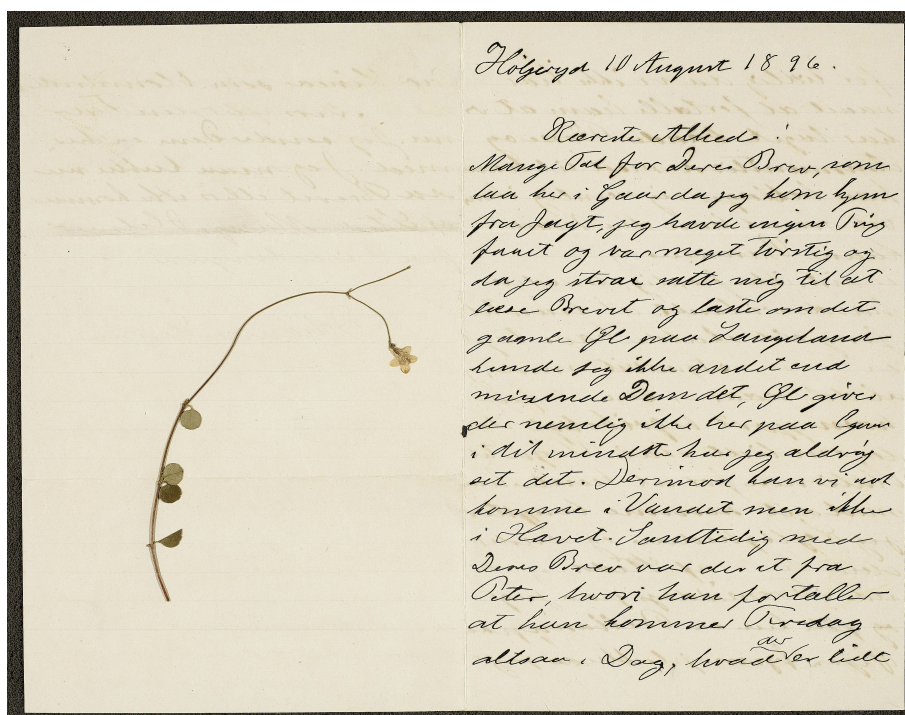 Höljeryd 10 August 1896.
Kæreste Alhed!
Mange Tak for Deres Brev, som
laa her i Gaar da jeg kom hjem
fra Jagt, jeg havde ingen Ting
faaet og var meget tørstig og
da jeg strax satte mig til at
læse Brevet og læste om det
gamle Øl paa Langeland
kunde jeg ikke andet end
misunde Dem det, Øl gives
der nemlig ikke her paa Egnen
i det mindste har jeg aldrig
set det. Derimod kan vi nok
komme i Vandet men ikke
i Havet. Samtidig med
Deres Brev var der et fra
Peter, hvori han fortæller
at han kommer Tirsdag
altsaa i Dag, hvad der er lidt